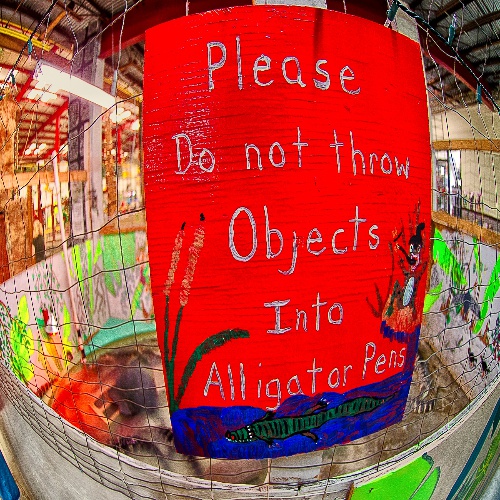 Please
Do not throw
Objects
Into
Alligator Pens